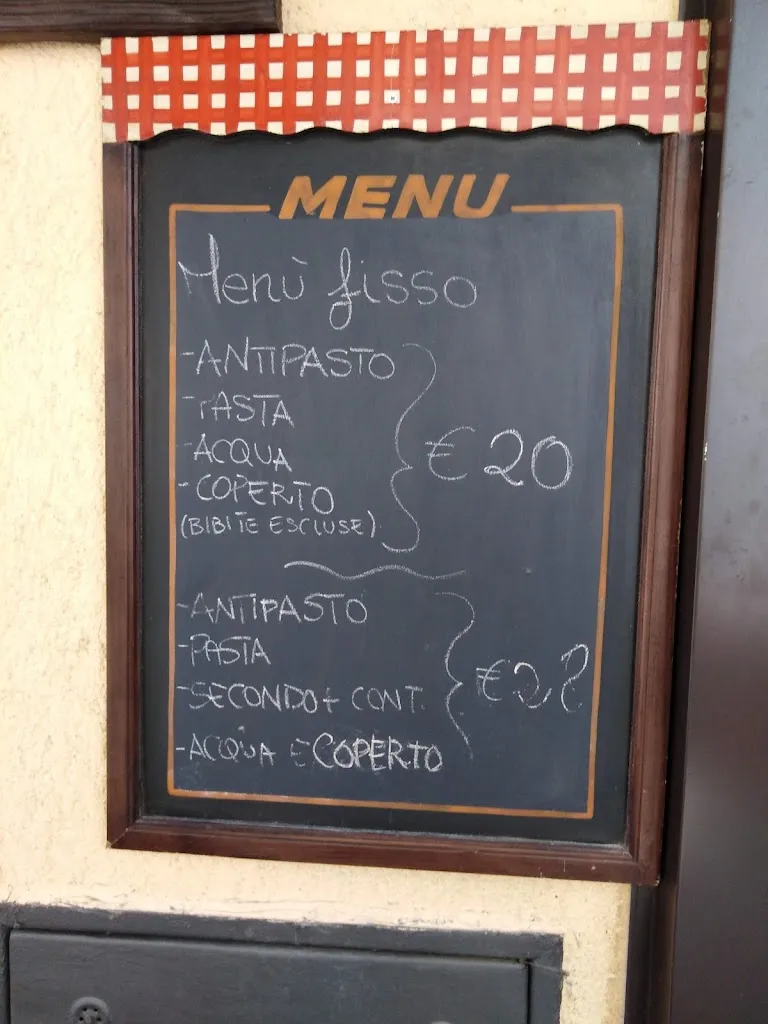 MENU
Menù fisso
-ANTIPASTO
-PASTA
-ACQUA
-COPERTO
(BIBITE ESCLUSE)
€20
-ANTIPASTO
-PASTA
-SECONDO+ CONT.
-ACQUA E COPERTO